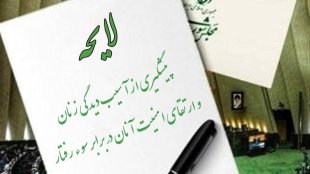 لایحه
پیشگیری از آسیب دیدگی زنان
و ارتقای امنیت آنان در برابر سوء رفتار